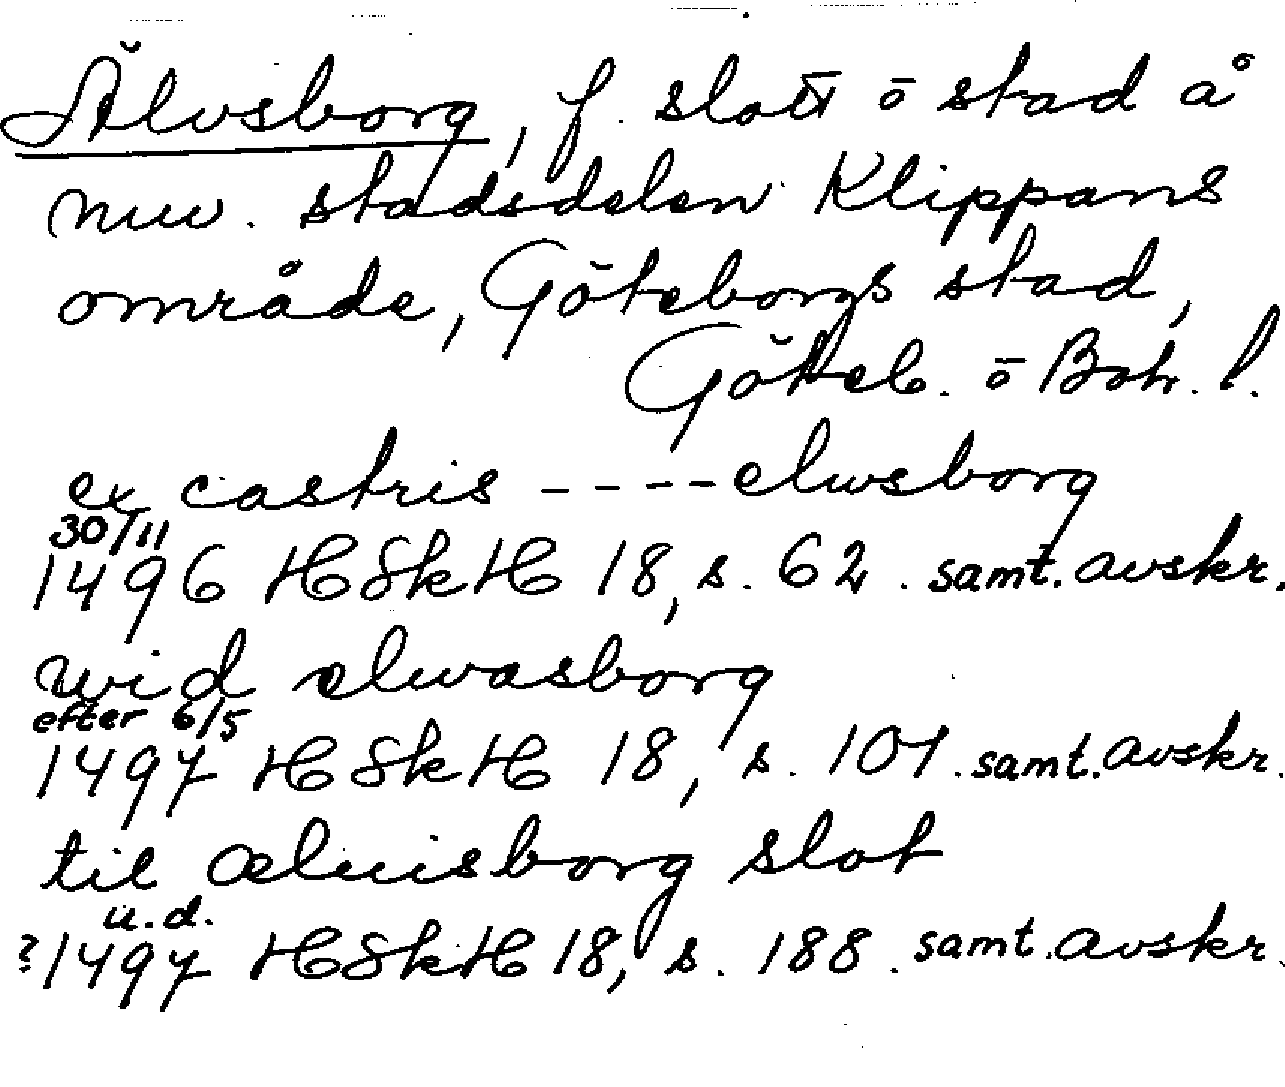 Älvsborg, f. slott o stad å
nuv. stadsdelen Klippans
område, Göteborgs stad,
Göteb. o Boh. l.
ex castris ---- elwsborg
30/11
1496 HSkH 18, s. 62. samt. avskr.
wid elwasborg
efter 6/5
1497 HSkH 18, s. 101. samt. avskr.
til æluisborg slot
u.d.
?1497 HSkH 18, s. 188. samt. avskr.